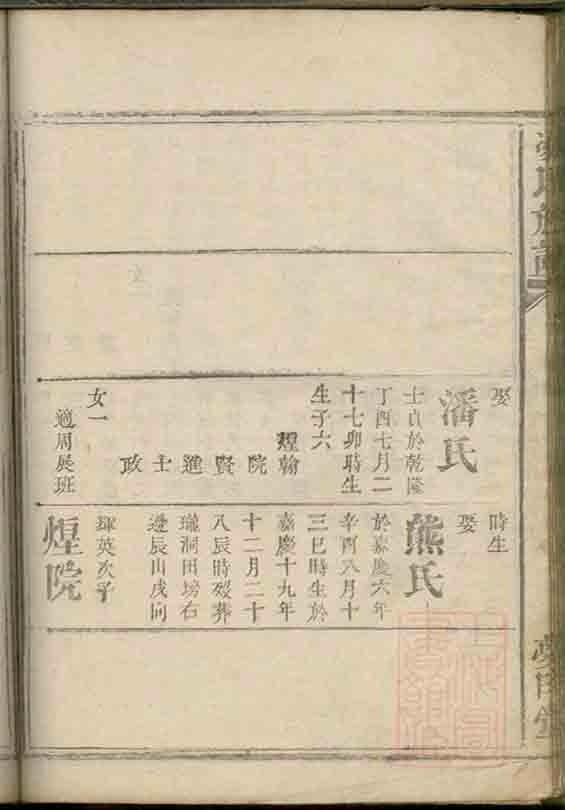 娶
潘氏
士貞於乾隆
丁酉七月二
十七卯時生
生子六
煌翰
院
賢
進
士
政
女一
適周展班
時生
娶
熊氏
於嘉慶六年
辛酉八月十
三巳時生於
嘉慶十九年
十二月二十
八辰時歿葬
瓏洞田塝右
邊辰山戌向
瑋英次子
煌院